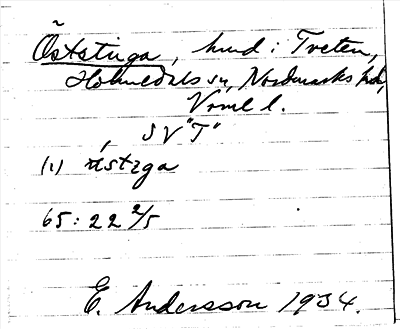 Öststuga, hmd i Tveten,
Holmedals sn, Nordmarks hd,
Vrml l.
SV "T"
(1) ɷ́stɛga
65: 22 2/5
E. Andersson 1934.